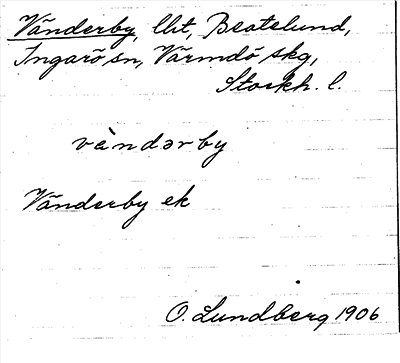 Vänderby, lht, Beatelund,
Ingarö sn, Värmdö skg,
Stockh. l.
vàndərby
Vänderby ek
O. Lundberg 1906